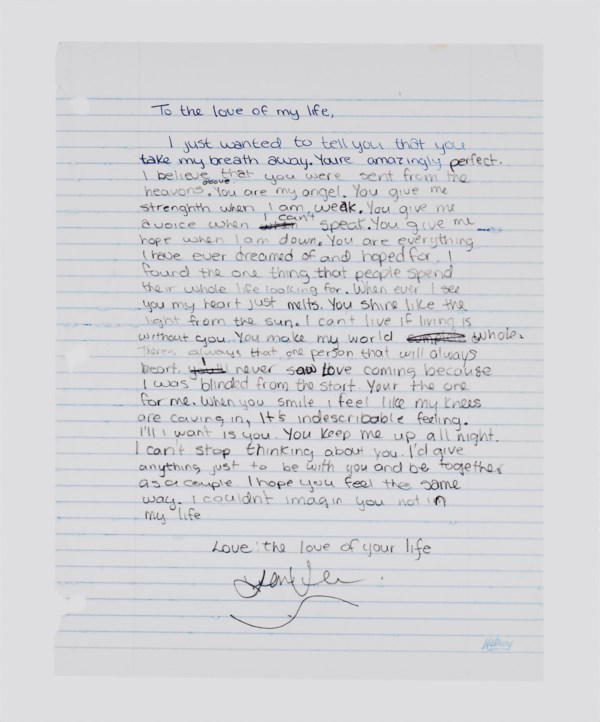 To the love of my life,
I just wanted to tell you that you
take my breath away. Youre amazingly perfect.
I believe that you were sent from the
heavons above. You are my angel. You give me
strenghth when I am weak. You give me
a voice when I can't speak. You give me
hope when I am down. You are everything
I have ever dreamed of and hoped for. I
found the one thing that people spend
their whole life looking for. When ever I see
you my heart just melts. You shine like the
light from the sun. I cant live if living is
without you. You make my world whole.
Theres always that one person that will always
heart. I never saw love coming because
I was blinded from the start. Your the one
for me. When you smile i feel like my knees
are caving in, It's indescribable feeling.
I'll i want is you. You keep me up all night.
I can't stop thinking about you. I'd give
anything just to be with you and be together
as a couple. I hope you feel the same
way. I couldn't imagin you not in
my life
Love: the love of your life